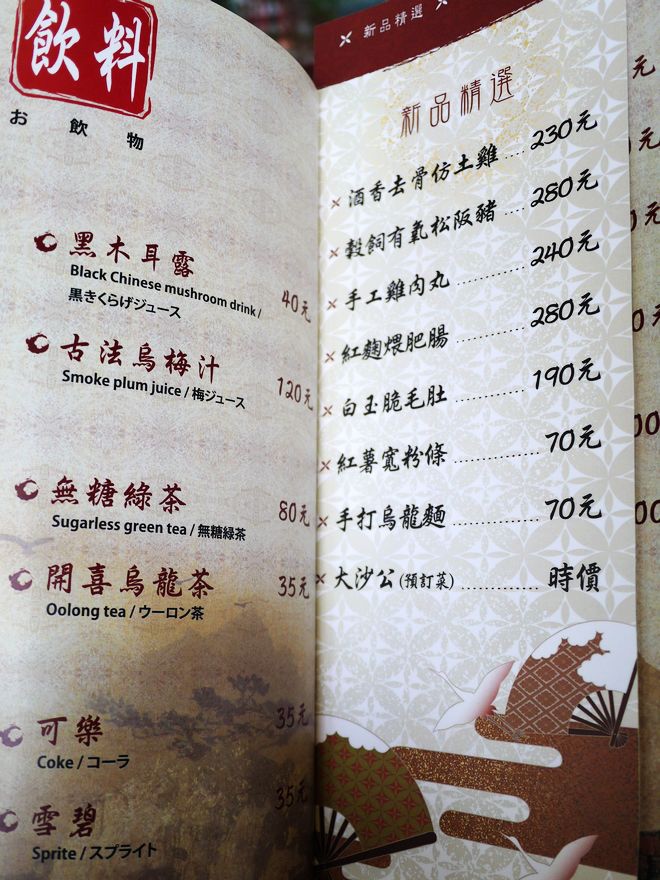 飲料
お飲物
黑木耳露
Black Chinese mushroom drink /
黒きくらげジュース
40元
古法烏梅汁
Smoke plum juice / 梅ジュース
120元
無糖綠茶
Sugarless green tea / 無糖緑茶
80元
開喜烏龍茶
Oolong tea / ウーロン茶
35元
可樂
Coke / コーラ
35元
雪碧
Sprite / スプライト
35元
新品精選
新品精選
酒香去骨仿土雞 .... 230元
穀飼有氧松阪豬 .... 280元
手工雞肉丸 ............ 240元
紅麴煨肥腸 ............ 280元
白玉脆毛肚 ............ 190元
紅薯寬粉條 ............ 70元
手打烏龍麵 ............ 70元
大沙公(預訂菜) ............ 時價
元
元
元